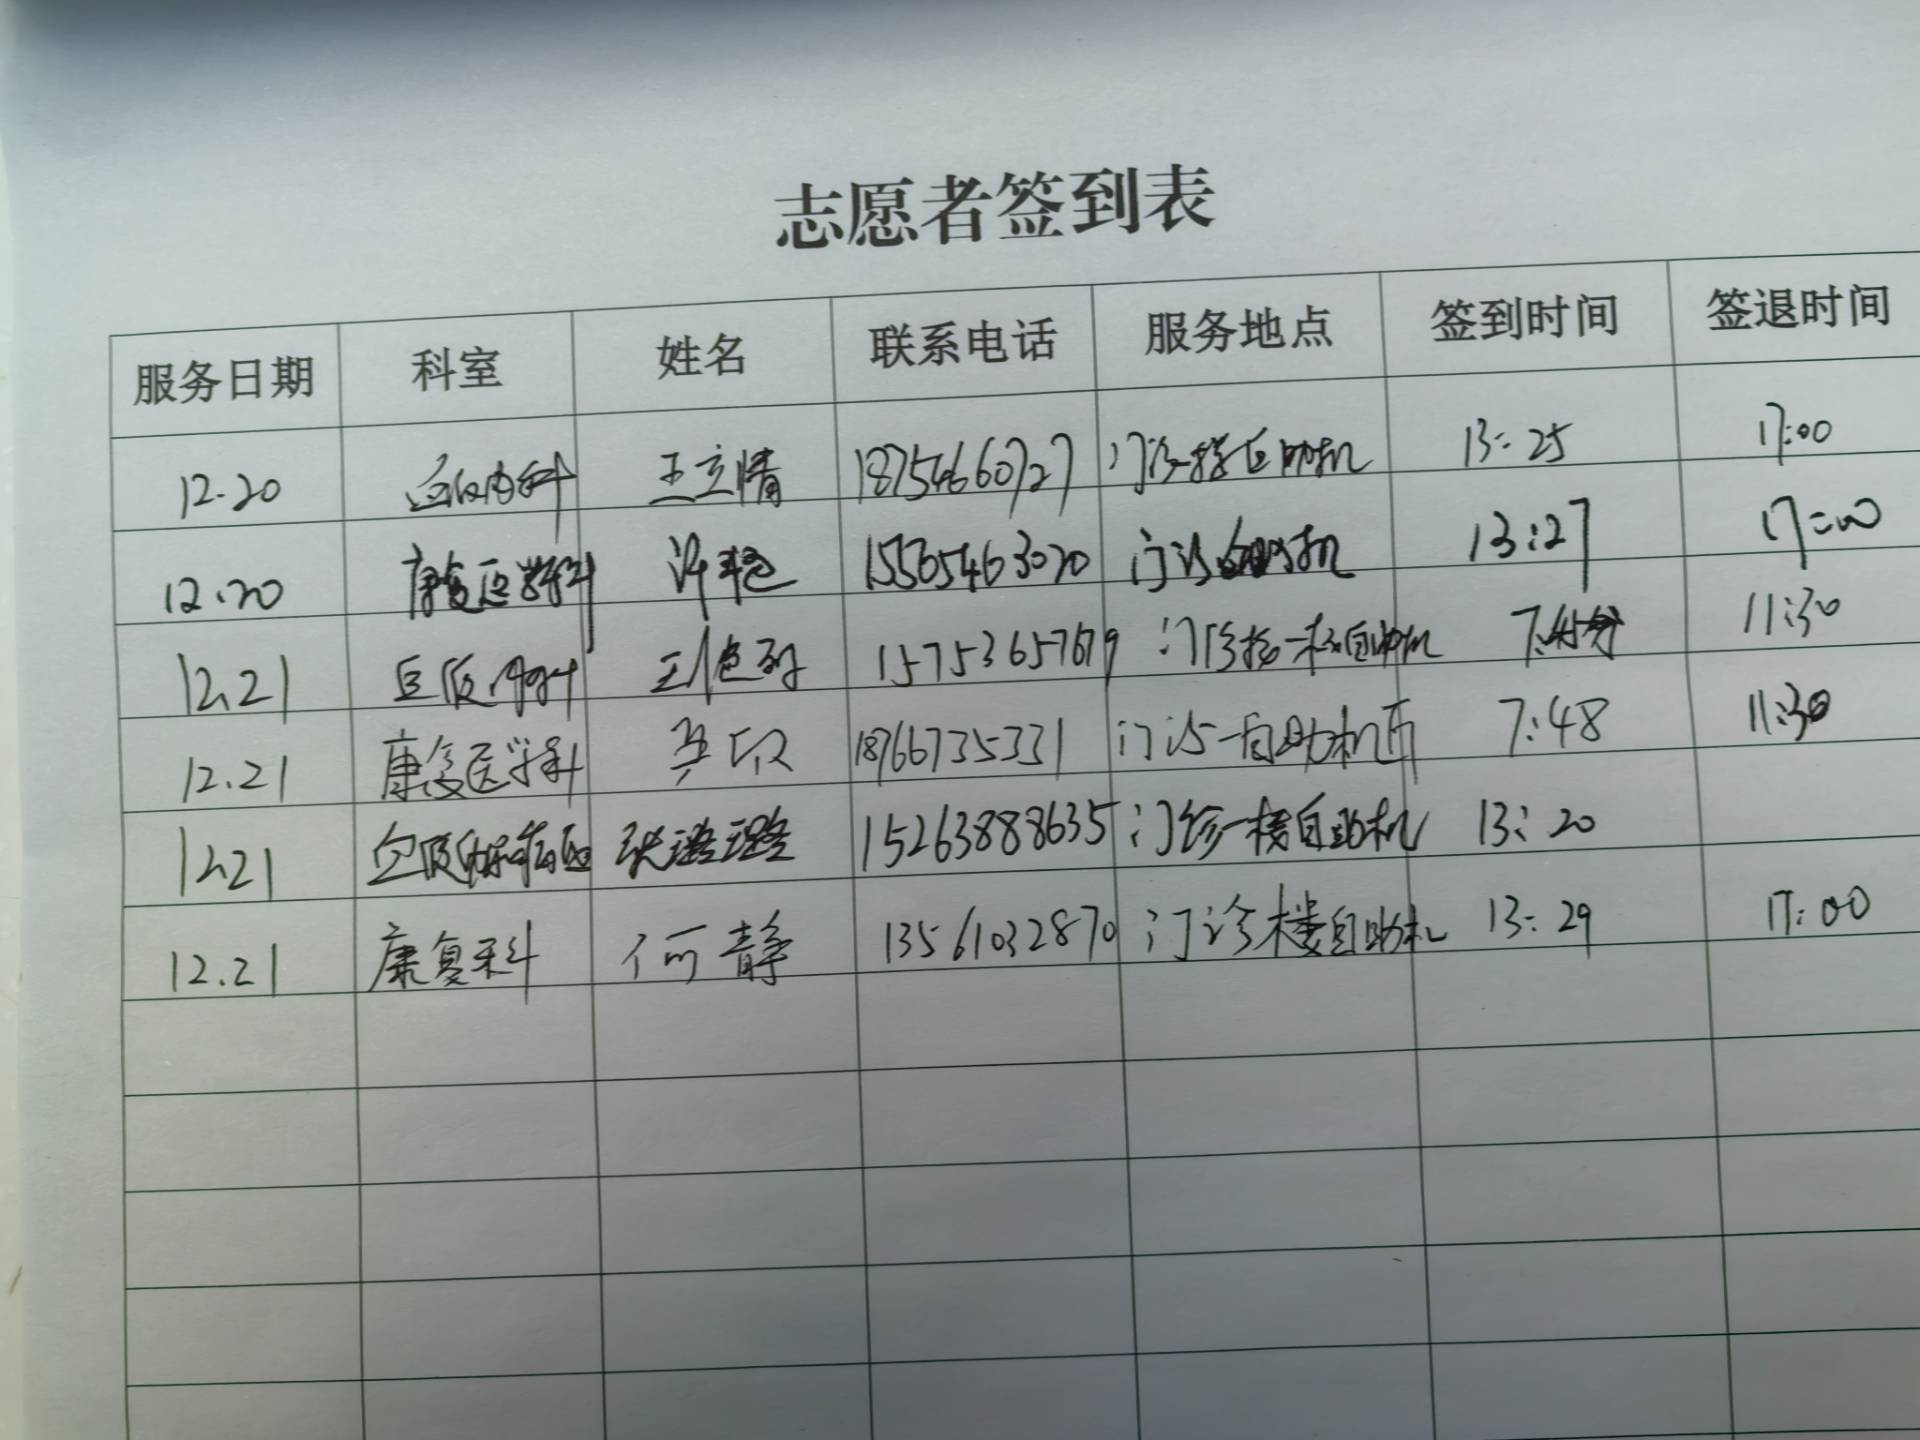 志愿者签到表
服务日期 科室 姓名 联系电话 服务地点 签到时间 签退时间
12.20 王立情 18754660727 门诊楼自助机 13:25 17:00
12.20 康复医学科 许艳 15565463020 门诊自助机 13:27 17:00
12.21 王 15753657679 门诊楼一楼自助机 7:45分 11:30
12.21 康复医学科 18766735331 门诊一自助机西 7:48 11:30
12.21 张潞璐 15263888635 门诊一楼自助机 13:20
12.21 康复科 何静 13561032870 门诊楼自助机 13:29 17:00